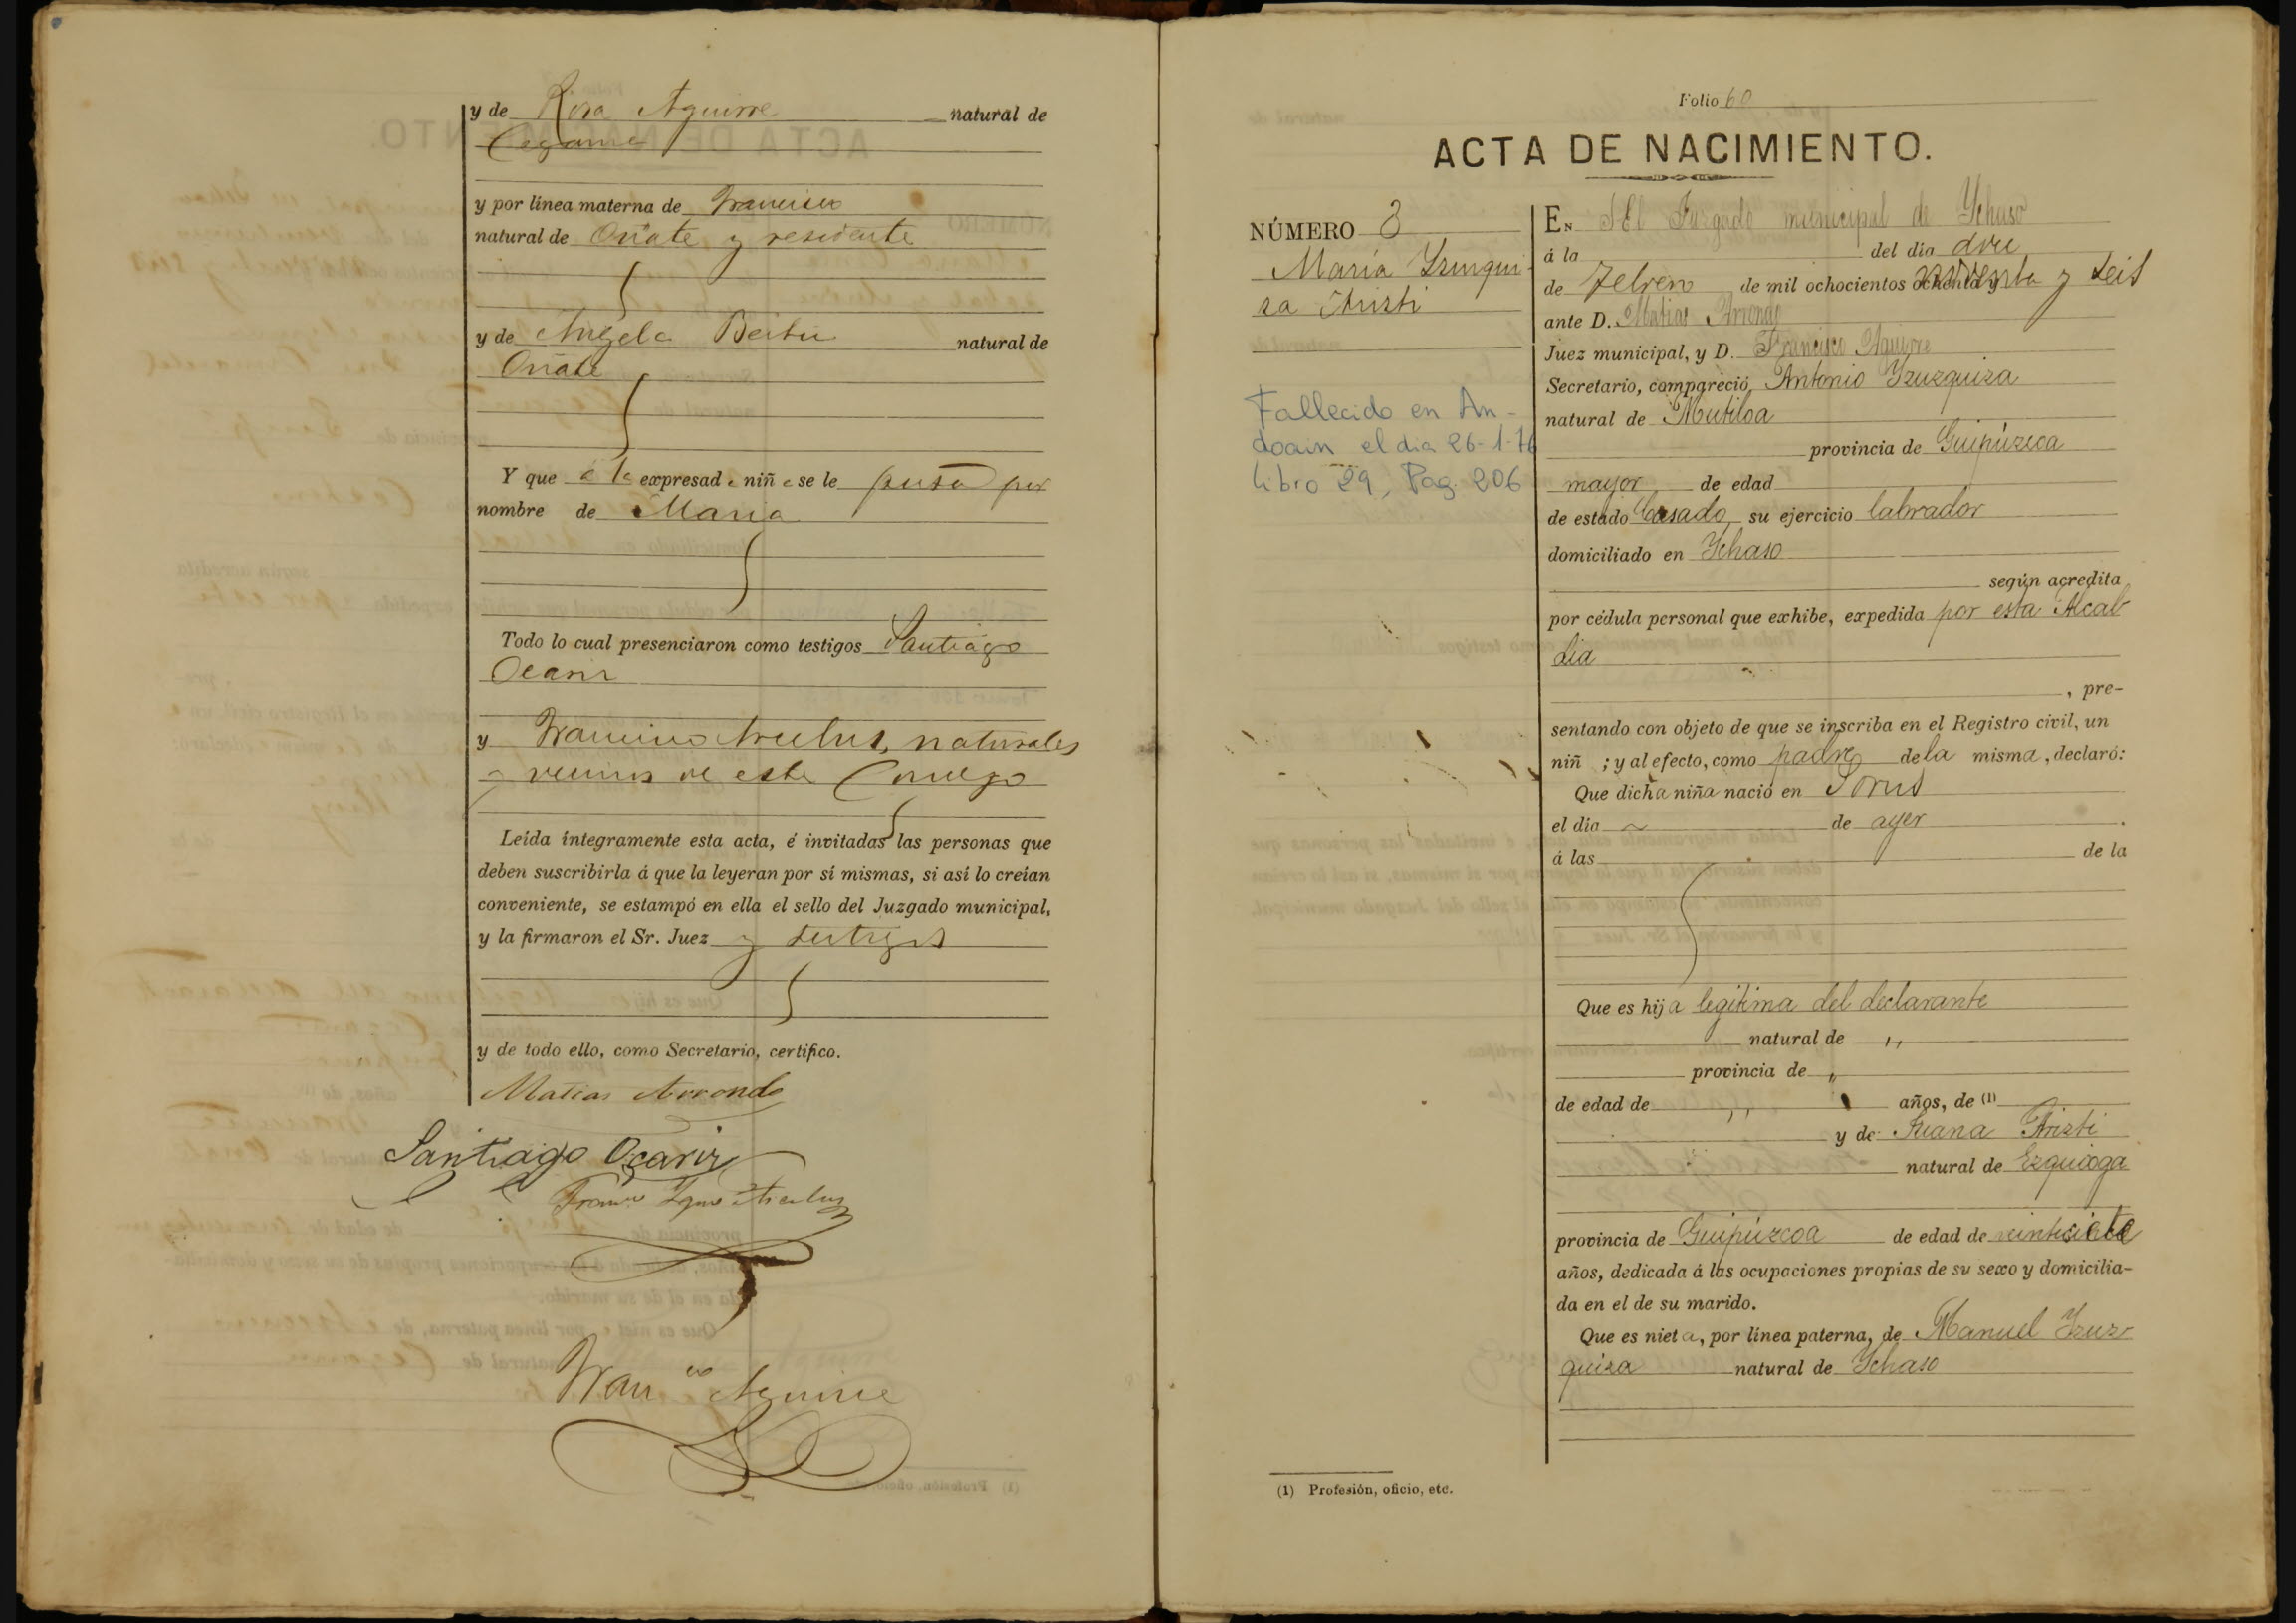 y de Rosa Aguirre natural de
Cegama
y por línea materna de Francisco
natural de Oñate y residente
y de Angela Beitu natural de
Oñate
Y que a la expresada niña se le puso por
nombre de Maria
Todo lo cual presenciaron como testigos Santiago
Ocariz
y Francisco naturales
y vecinos de este Concejo
Leída íntegramente esta acta, é invitadas las personas que
deben suscribirla á que la leyeran por sí mismas, si así lo creían
conveniente, se estampó en ella el sello del Juzgado municipal,
y la firmaron el Sr. Juez y testigos
y de todo ello, como Secretario, certifico.
Matias Arrondo
Santiago Ocariz
Franco Igno
Franco Aguirre
Folio 60
ACTA DE NACIMIENTO.
NÚMERO 3
Maria Yzuzqui-
za Aristi
Fallecido en An-
doain el dia 26-1-76
Libro 29, Pag. 206
EN El Juzgado municipal de Ychaso
á la del día doce
de Febrero de mil ochocientos ochenta y noventa y seis
ante D. Matias Arrondo
Juez municipal, y D. Francisco Aguirre
Secretario, compareció, Antonio Yzuzquiza
natural de Mutiloa
provincia de Guipúzcoa
mayor de edad
de estado Casado, su ejercicio labrador
domiciliado en Ychaso
según acredita
por cédula personal que exhibe, expedida por esta Alcal
dia
, pre-
sentando con objeto de que se inscriba en el Registro civil, un
niñ ; y al efecto, como padre de la misma, declaró:
Que dicha niña nació en
el día ~ de ayer
á las de la
Que es hija legitima del declarante
natural de ,,
provincia de ,,
de edad de ,, años, de (1)
y de Juana Aristi
natural de Ezquioga
provincia de Guipúzcoa de edad de veintisiete
años, dedicada á las ocupaciones propias de su sexo y domicilia-
da en el de su marido.
Que es nieta, por línea paterna, de Manuel Yzuz-
quiza natural de Ychaso
(1) Profesión, oficio, etc.